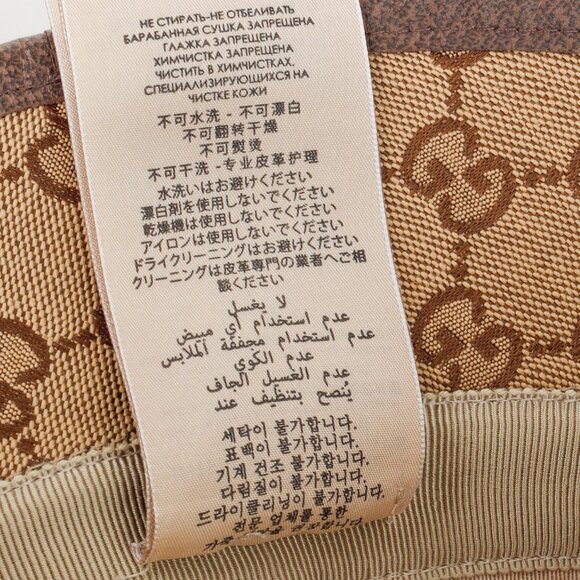 НЕ СТИРАТЬ-НЕ ОТБЕЛИВАТЬ
БАРАБАННАЯ СУШКА ЗАПРЕЩЕНА
ГЛАЖКА ЗАПРЕЩЕНА
ХИМЧИСТКА ЗАПРЕЩЕНА
ЧИСТИТЬ В ХИМЧИСТКАХ,
СПЕЦИАЛИЗИРУЮЩИХСЯ НА
ЧИСТКЕ КОЖИ
不可水洗 - 不可漂白
不可翻转干燥
不可熨烫
不可干洗 - 专业皮革护理
水洗いはお避けください
漂白剤を使用しないでください
乾燥機は使用しないでください
アイロンは使用しないでください
ドライクリーニングはお避けください
クリーニングは皮革専門の業者へご相
談ください
لا يغسل
عدم استخدام أي مبيض
عدم استخدام مجففة الملابس
عدم الكوي
عدم الغسيل الجاف
يُنصح بتنظيف عند
세탁이 불가합니다.
표백이 불가합니다.
기계 건조 불가합니다.
다림질이 불가합니다.
드라이클리닝이 불가합니다.
전문 업체를 통한